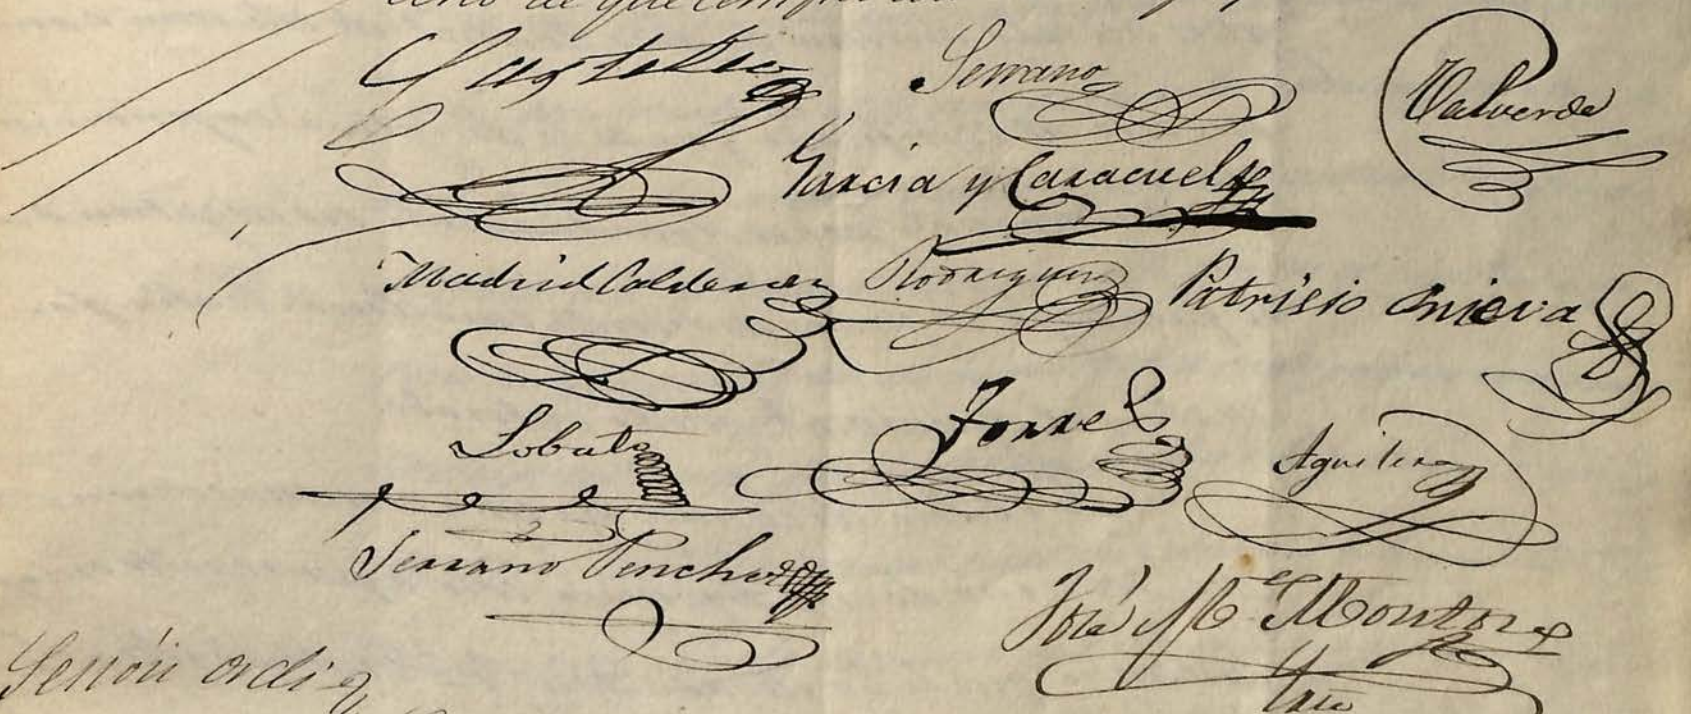 Castella
Serrano
Valverde
García y Caracuel
Madrid Calderon
Rodriguez
Patrisio Nieva
Lobato
Torres
Aguilera
Serrano Penche
José Mª Montoro
Sesión ordi